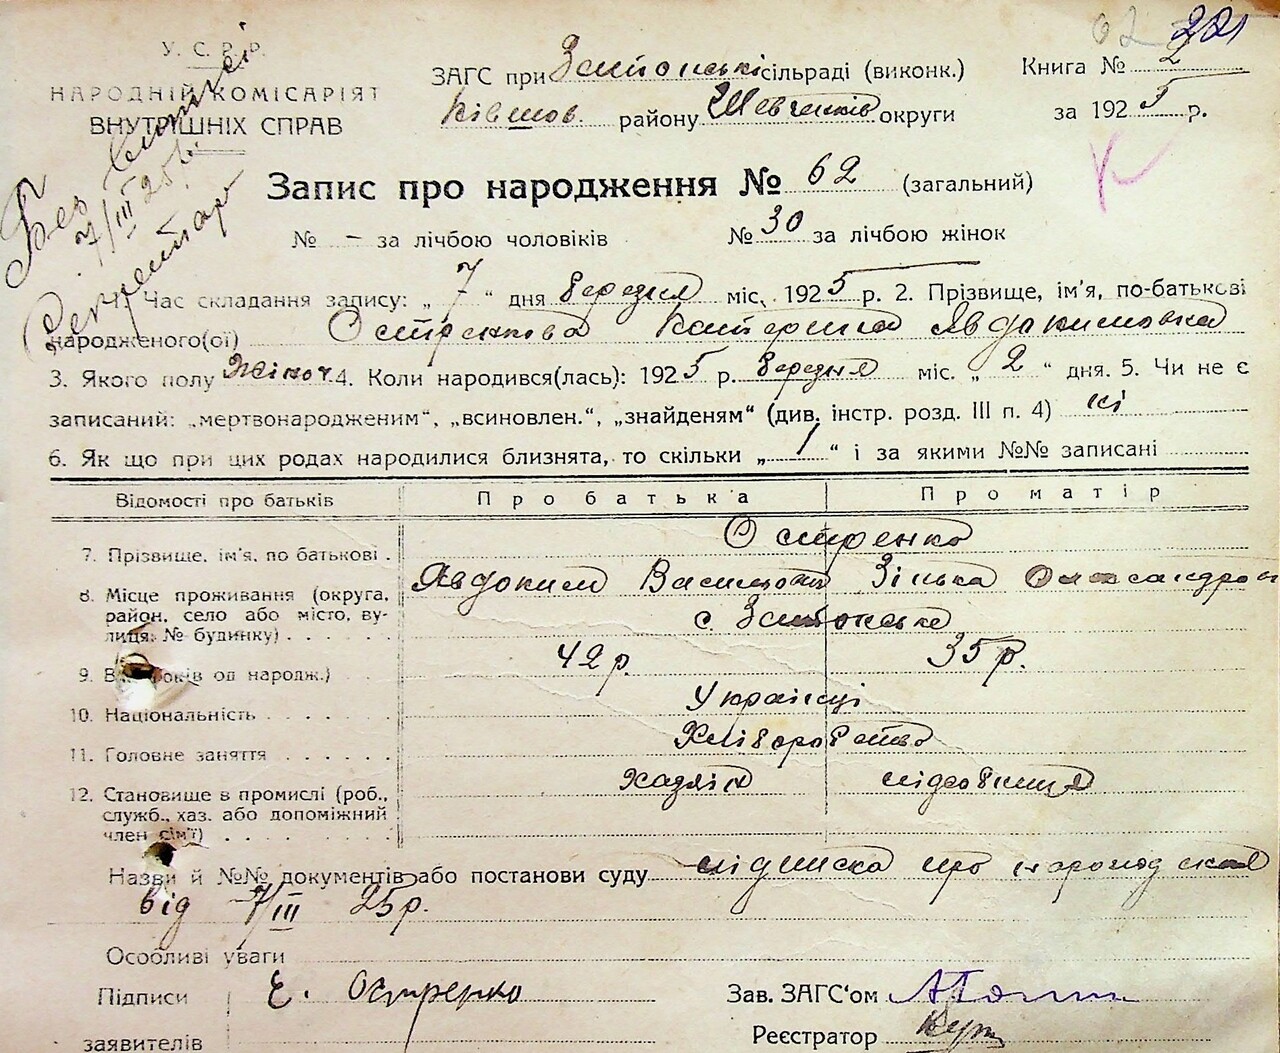 221
У. С. Р. Р.
НАРОДНІЙ КОМІСАРІЯТ
ВНУТРІШНІХ СПРАВ
ЗАГС при сільраді (виконк.) Книга № 2
району Шевченків округи за 1925 р.
7/III 25 р.
Запис про народження № 62 (загальний)
№ – за лічбою чоловіків № 30 за лічбою жінок
1. Час складання запису: „ 7 “ дня березня міс. 1925 р. 2. Прізвище, ім'я, по-батькові
народженого(ої) Остренкова Катерина Явдокимовна
3. Якого полу жіноч. 4. Коли народився(лась): 1925 р. березня міс. „ 2 “ дня. 5. Чи не є
записаний: „мертвонародженим“, „всиновлен.“, „знайденям“ (див. інстр. розд. III п. 4) ні
6. Як що при цих родах народилися близнята, то скільки „ 1 “ і за якими №№ записані
Відомості про батьків Про батька Про матір
7. Прізвище, ім'я, по батькові . Остренко
Явдоким Василович Зінька Олександров
8. Місце проживання (округа, район, село або місто, вулиця, № будинку) . . . . . с.
9. років од народж.) 42 р. 35 р.
10. Національність . . . . . . Українці
11. Головне заняття . . . . . . Хліборобство
12. Становище в промислі (роб., служб., хаз. або допоміжний член сім'ї) . . . . . . Хазяїн
Назви й №№ документів або постанови суду підписка про
від 7/III 25 р.
Особливі уваги
Підписи Є. Остренко Зав. ЗАГС'ом
заявителів Реєстратор